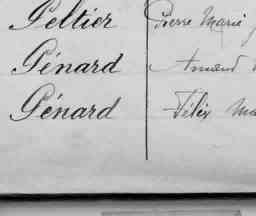 Peltier Pierre Marie
Génard Amand
Génard Félix Ma